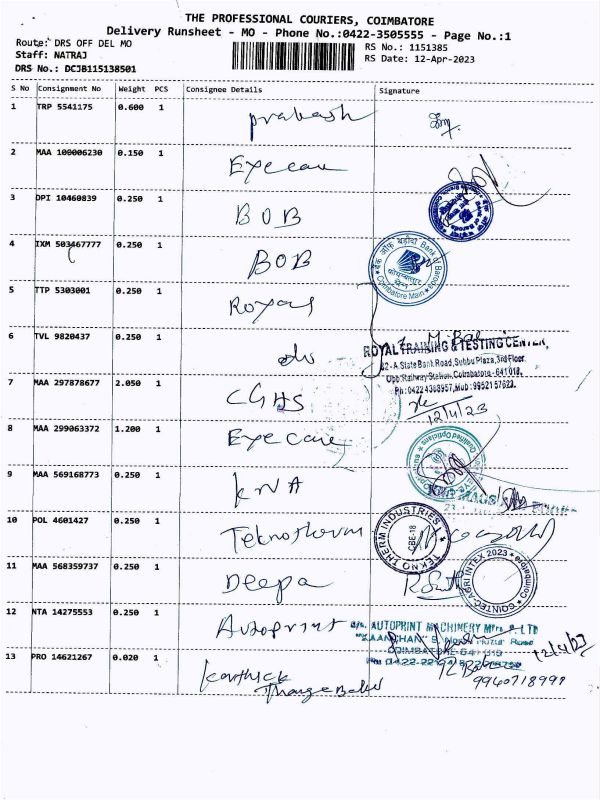 THE PROFESSIONAL COURIERS, COIMBATORE
Delivery Runsheet - MO - Phone No.:0422-3505555 - Page No.:1
Route: DRS OFF DEL MO
RS No.: 1151385
Staff: NATRAJ
RS Date: 12-Apr-2023
DRS No.: DCJB115138501
S No Consignment No Weight PCS Consignee Details Signature
1 TRP 5541175 0.600 1 prakash
2 MAA 100006230 0.150 1 Eyecare
3 DPI 10460839 0.250 1 BOB
4 IXM 503467777 0.250 1 BOB
बैंक ऑफ़ बड़ौदा Bank of Baroda
Coimbatore Main
5 TTP 5303001 0.250 1 Royal
6 TVL 9820437 0.250 1 do
ROYAL TRAINING & TESTING CENTER,
42-A, State Bank Road, Subbu Plaza, 3rd Floor,
Opp: Railway Station, Coimbatore - 641 018,
Ph: 0422 4388957, Mob: 99521 57623.
7 MAA 297878677 2.050 1 CGHS
12/4/23
8 MAA 299063372 1.200 1 Eyecare
9 MAA 569168773 0.250 1 KNA
10 POL 4601427 0.250 1 Teknotherm
TEKNO THERM INDUSTRIES
CBE-18
11 MAA 568359737 0.250 1 Deepa
COINTEC AGRI INTEX 2023
Coimbatore
12 NTA 14275553 0.250 1 Autoprint
AUTOPRINT MACHINERY Mfrs. P. LTD
COIMBATORE-641
12/4/23
13 PRO 14621267 0.020 1 Karthick
9940718999